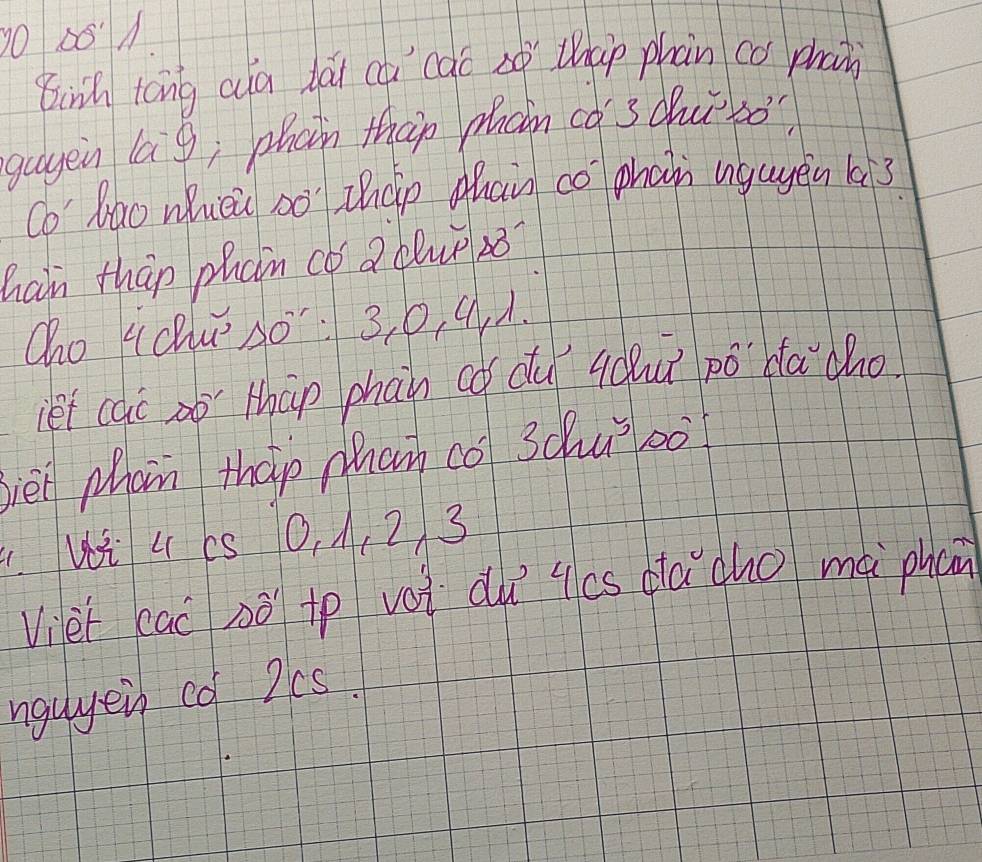 số 1.
Tính tổng của tất cả các số thập phân có phần
nguyên là 9, phần thập phân có 3 chữ số.
Có bao nhiêu số thập phân có phần nguyên là 3.
phần thập phân có 2 chữ số.
Cho 4 chữ số: 3, 0, 4, 1.
iết các số thập phân có đủ 4 chữ số đã cho.
Biết phần thập phân có 3 chữ số
4. Với 4 cs 0, 1, 2, 3
Viết các số tp với đủ 4cs đã cho mà phần
nguyên có 2cs.